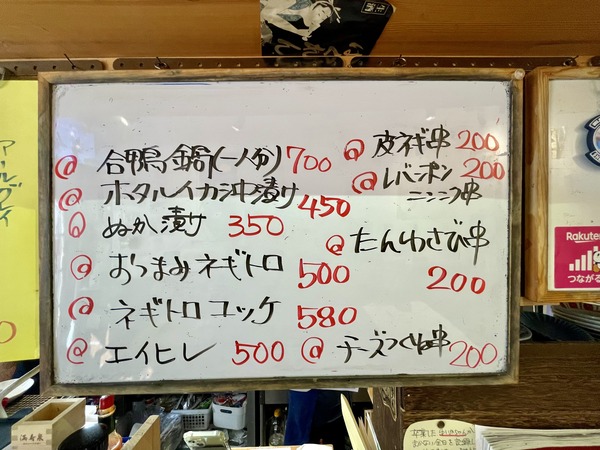 @ 合鴨鍋(一人分) 700
@ ホタルイカ沖漬け 450
@ ぬか漬け 350
@ おつまみネギトロ 500
@ ネギトロユッケ 580
@ エイヒレ 500
@ 皮ネギ串 200
@ レバーポン 200
ニンニク串
@ たんわさび串
200
@ チーズつくね串 200
Rakuten
つながる
満寿泉